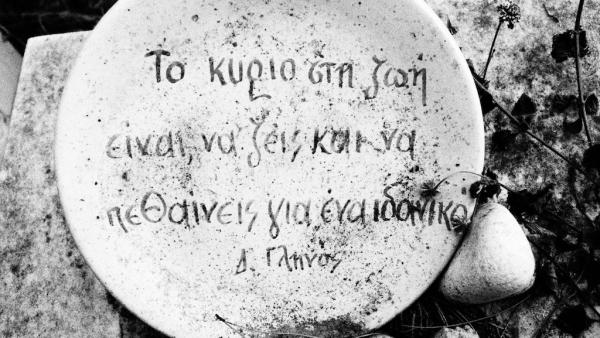 Το κυριο στη ζωή
είναι, να ζεις και να
πεθαίνεις για ένα ιδανικο
Δ. Γληνος